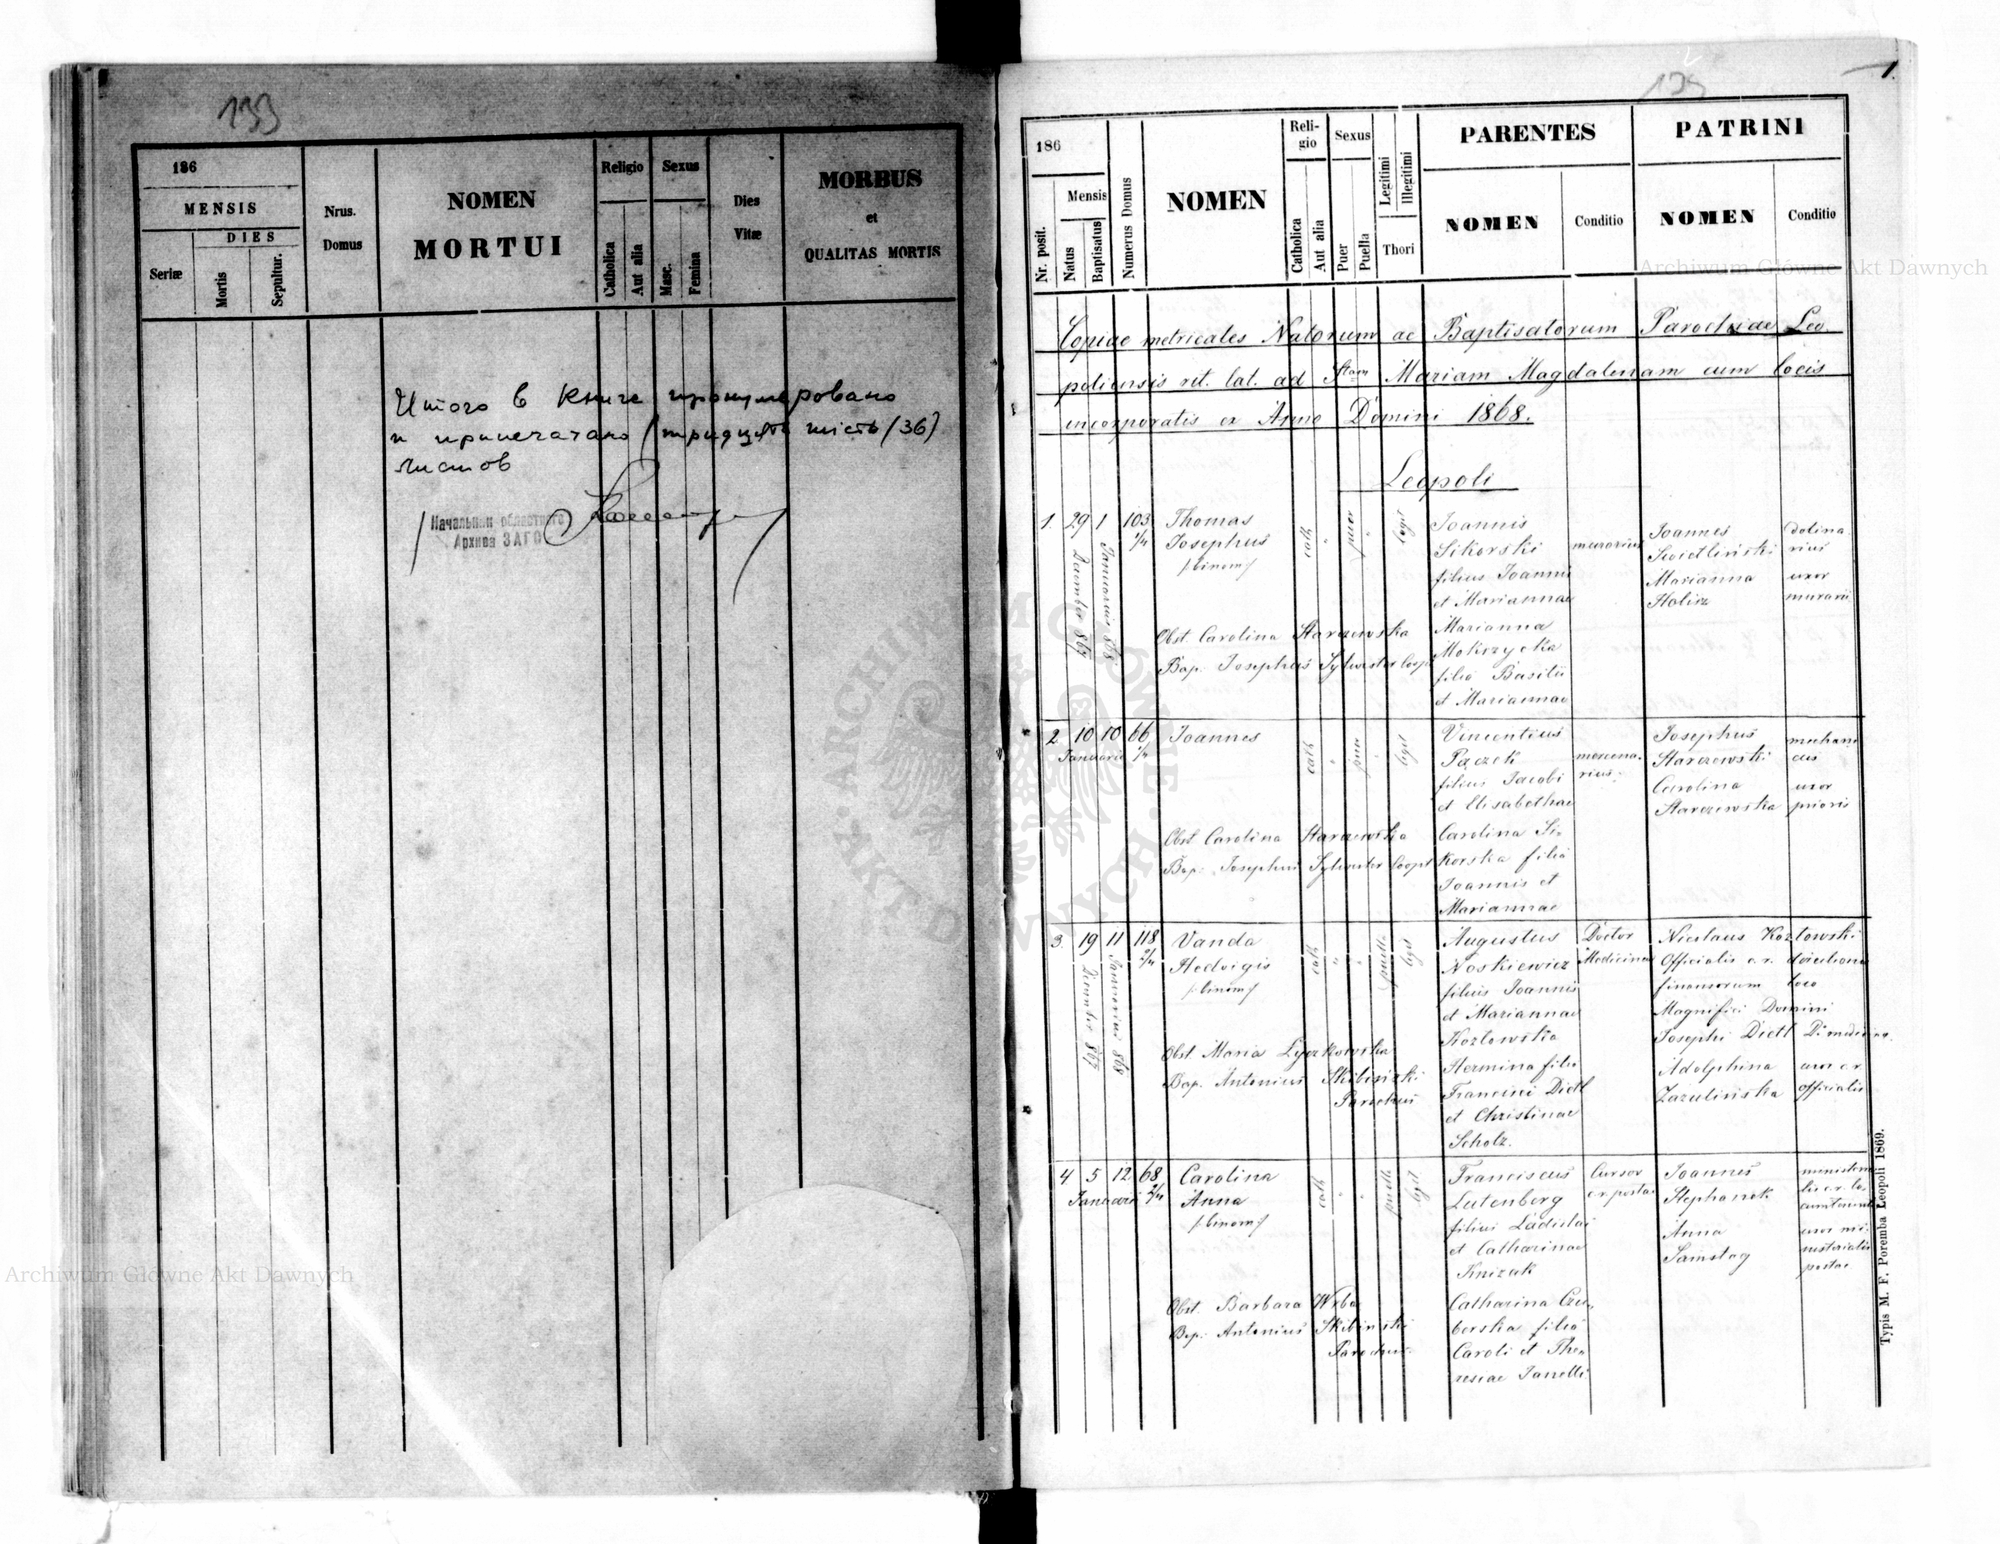 133
186
MENSIS
DIES
Seriæ
Mortis
Sepultur.
Nrus.
Domus
NOMEN
MORTUI
Religio
Catholica
Aut alia
Sexus
Masc.
Femina
Dies
Vitæ
MORBUS
et
QUALITAS MORTIS
Итого в книге пронумеровано
и припечатано /тридцать шість/(36)
листов
Начальник областного
Архива ЗАГС
1.
186
Nr. posit.
Mensis
Natus
Baptisatus
Numerus Domus
NOMEN
Reli-
gio
Catholica
Aut alia
Sexus
Puer
Puella
Legitimi
Illegitimi
Thori
PARENTES
NOMEN
Conditio
PATRINI
NOMEN
Conditio
Copiae metricales Natorum ac Baptisatorum Parochiae Leo-
poliensis rit. lat. ad Stam Mariam Magdalenam cum locis
incorporatis ex Anno Domini 1868.
Leopoli
1. 29 1 103 2/4
December 867
Januarius 868
Thomas
Josephus
/:binom:/
cath " puer " legit
Obst. Carolina Starzewska
Bap. Josephus Sylwester Coop.
Joannis
Sikorski
filius Joannis
et Mariannae
murarius
Marianna
Mokrzycka
filia Basilii
et Mariannae
Joannes
Swidliński
Marianna
Holisz
dolina-
rius
uxor
murarii
2 10 10 66 1/4
Januarii
Joannes
cath " puer " legit
Obst. Carolina Starzewska
Bap: Josephus Sylwester Coop.
Vincentius
Pączek
filius Jacobi
et Elisabethae
mercena-
rius.
Carolina Si-
korska filia
Joannis et
Mariannae
Josephus
Starzewski
Carolina
Starzewska
mechani
cus
uxor
prioris
3. 19 11 118 2/4
December 867
Januarius 868
Vanda
Hedvigis
/:binom:/
cath " " puella legit
Obst. Maria Łyczkowska
Bap. Antonius Skibiński
Parochus
Augustus
Noskiewicz
filius Joannis
et Mariannae
Kozłowska
Doctor
Medicinae
Hermina filia
Francisci Dietl
et Christinae
Scholz.
Nicolaus Kozłowski
Officialis c.r. directionis
finansorum loco
Magnifici Domini
Josephi Dietl Dr medicin.
Adolphina
Zazulińska
uxor c.r.
officialis
4 5 12 68 2/4
Januarii
Carolina
Anna
/:binom:/
cath " " puella legit
Obst. Barbara Wrba
Bap: Antonius Skibinski
Parochus.
Franciscus
Lutenberg
filius Ladislai
et Catharinae
Knizak
Cursor
c.r. postae
Catharina Czu-
berska filia
Caroli et The-
resiae Janelli
Joannes
Stephanek
Anna
Samstag
uxor mi-
nisterialis
postae
Typis M. F. Poremba Leopoli 1869.
Archiwum Główne Akt Dawnych
Archiwum Główne Akt Dawnych
ARCHIWUM GŁÓWNE
AKT DAWNYCH